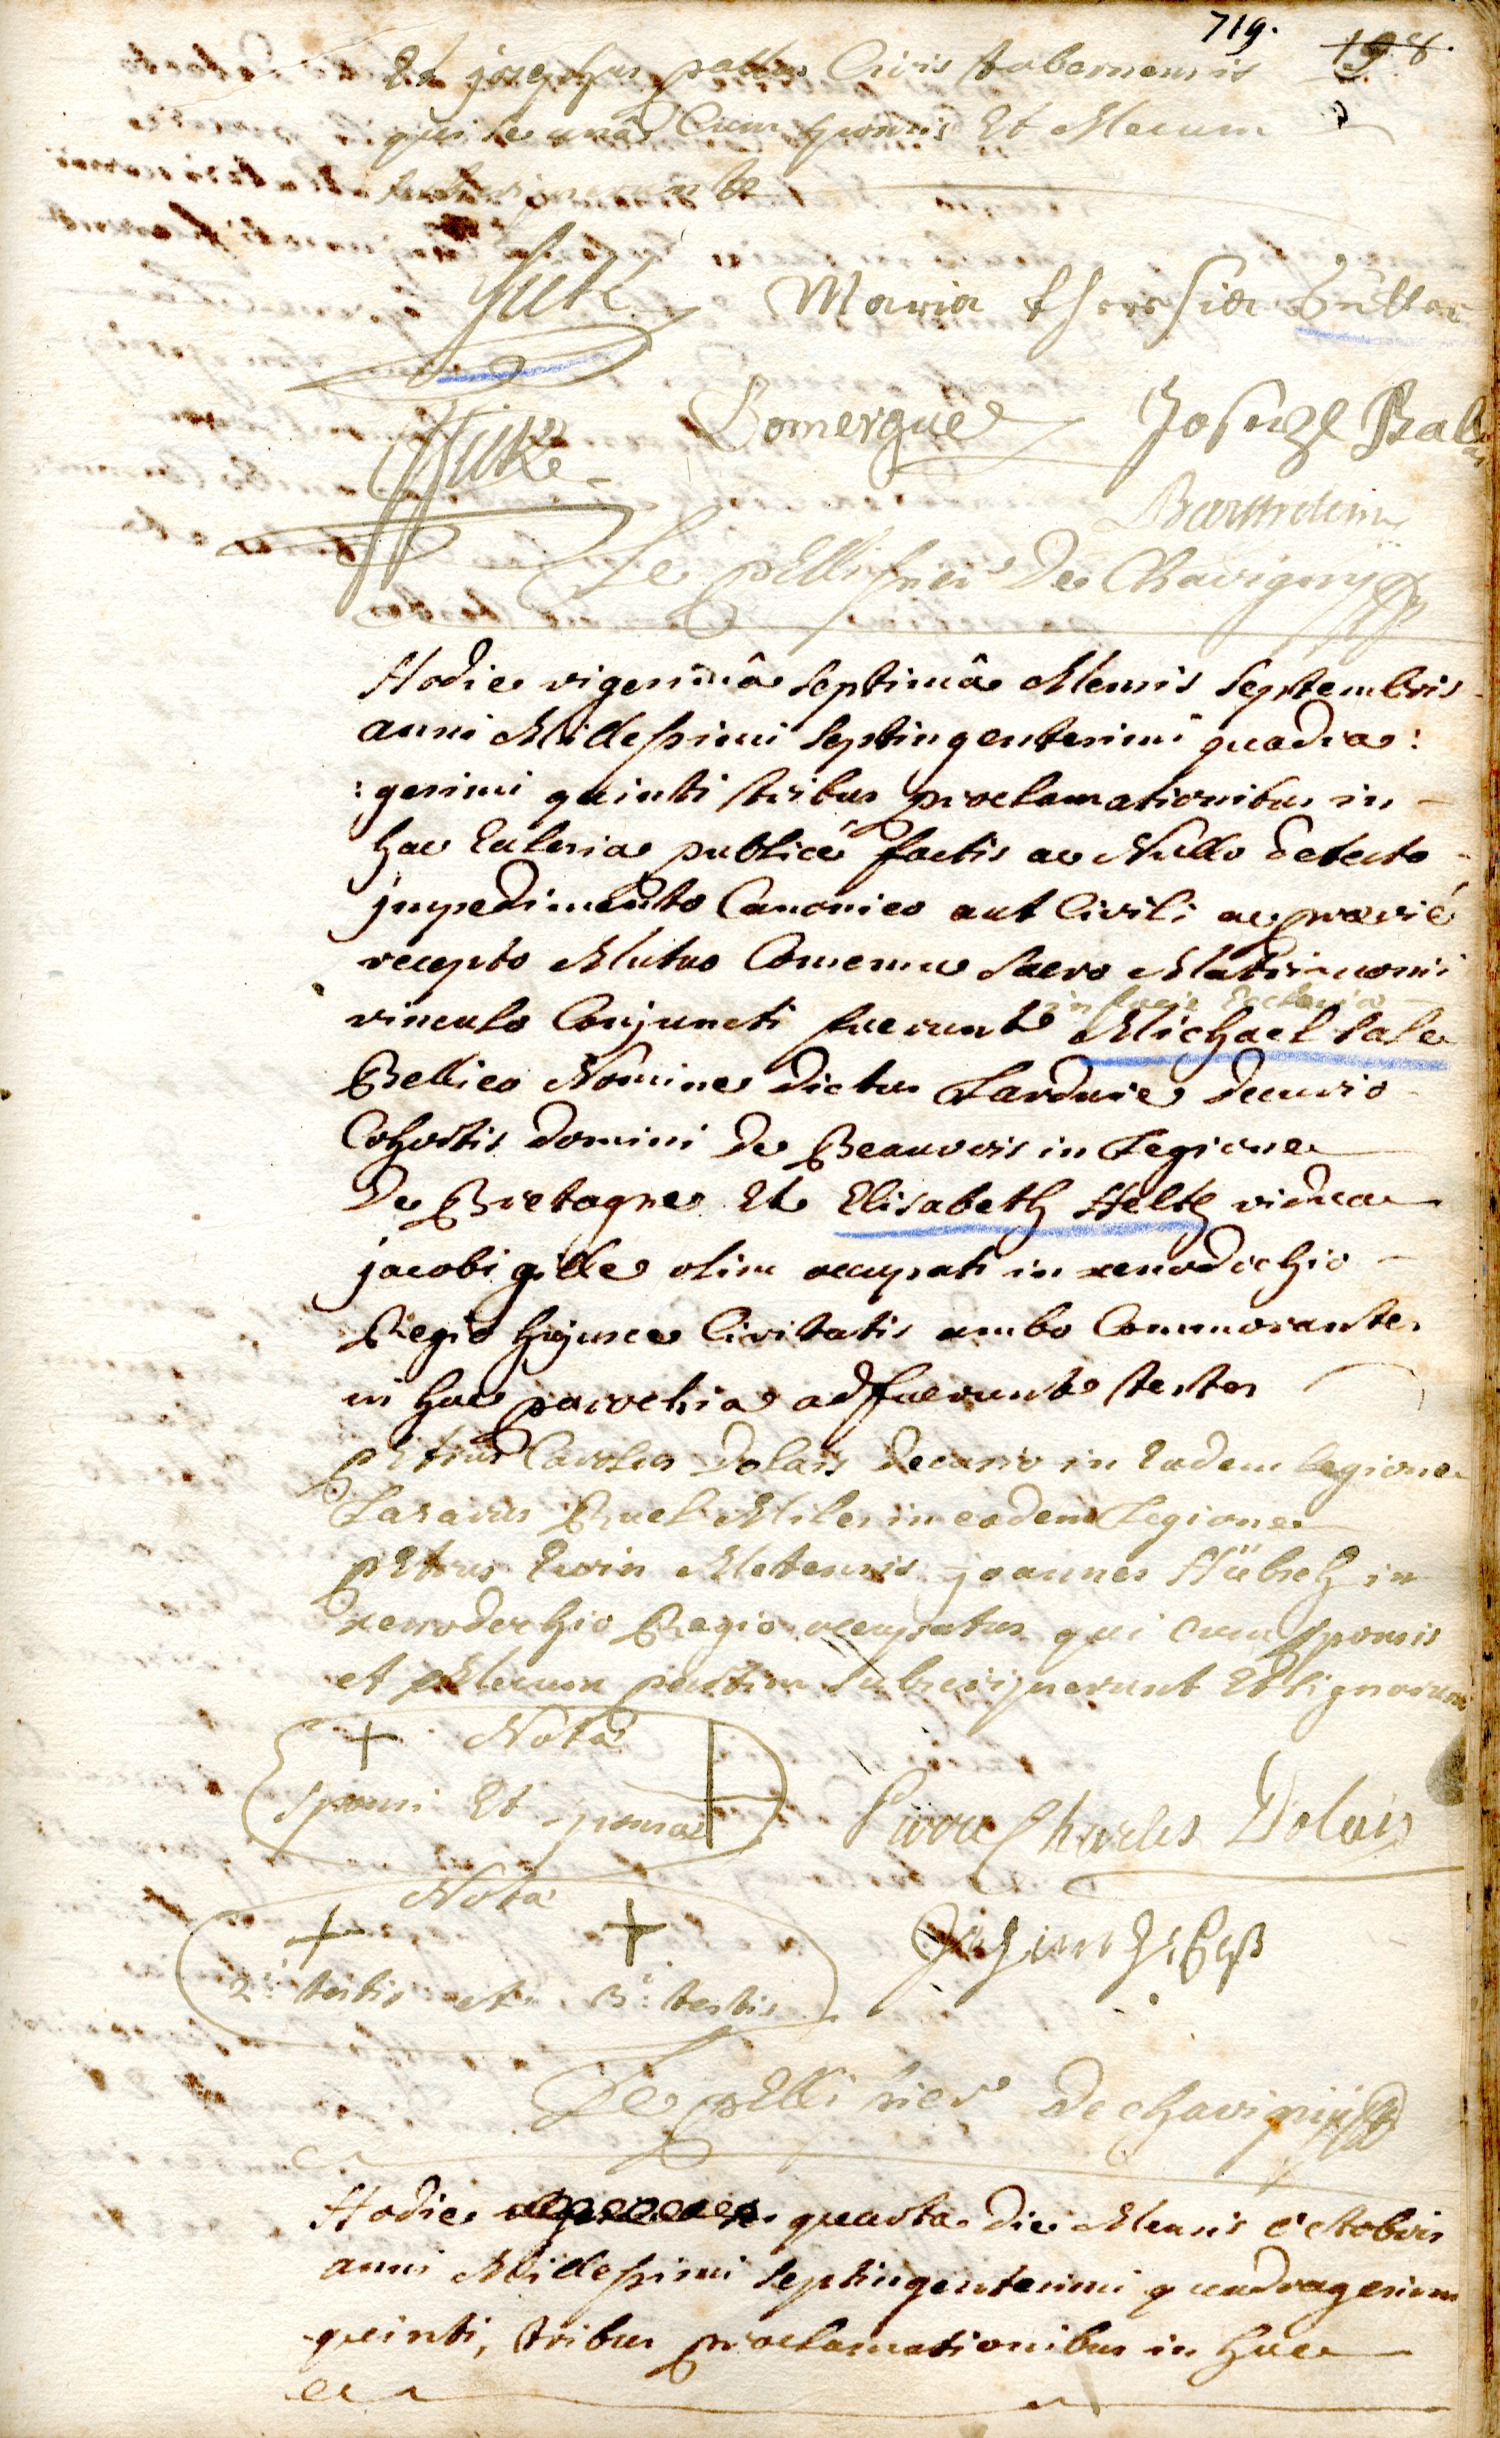 719.
198.
Et josephus pallas Civis tabernensis
qui se unâ Cum sponsis Et Mecum
subscripserunt
Maria theresia
Domergue Joseph
Le pellissier De Chavigny
Hodie vigesimâ septimâ Mensis Septembris
anni Millessimi septingentesimi quadra:
:gesimi quinti tribus proclamationibus in
hac Eclesia publicè factis ac Nullo detecto
jmpedimento Canonico aut Civili ac præviè
recepto Mutuo Consensu sacro Matrimonii
in facie Ecclesiæ
vinculo Conjuncti fuerunt Michael sale
Bellico Nomine dictus Lardure decurio
Cohortis domini De Beauvois in Legione
De Bretagne Et Elisabeth Heltz vidua
jacobi gille olim occupati in xenodochio
Regio hujusce Civitatis ambo Commorantes
in hac parochia adfuerunt testes
petrus Carolus Dolais Decurio in Eadem legione
Lasarus Ruel Miles in eadem Legione
petrus Evin Metensis joannes Hübsch in
xenodochio Regio occupatus qui cum sponsis
et Mecum partim subscripserunt Et signarunt
+ Nota
sponsi Et sponsæ
Pierre Charles Dolais
Nota
+ +
2.i testis et 3.i testis
Le pellissier De chavigny
Hodie quarta die Mensis octobris
anni Millessimi septingentesimi quadragesimi
quinti, tribus proclamationibus in hac